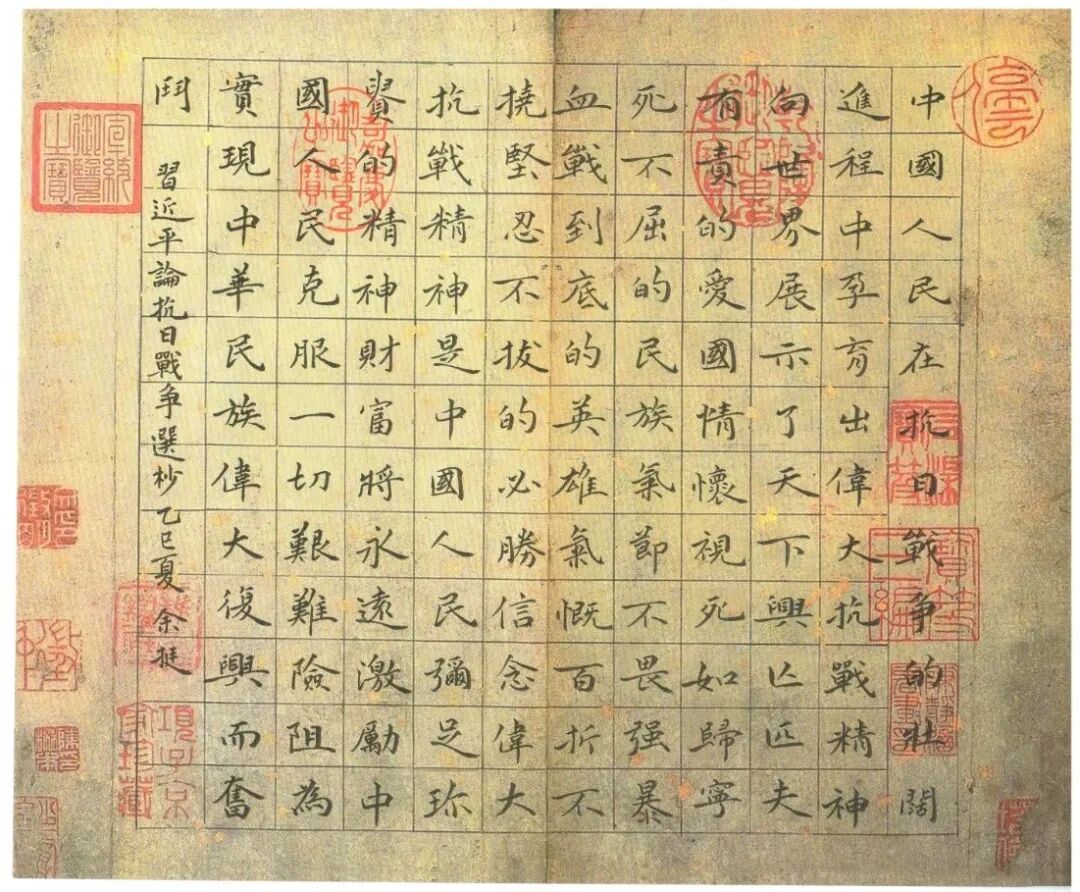 中國人民在抗日戰争的壯闊
進程中孕育出偉大抗戰精神
向世界展示了天下興亡匹夫
有責的愛國情懷視死如歸寧
死不屈的民族氣節不畏强暴
血戰到底的英雄氣慨百折不
撓堅忍不拔的必勝信念偉大
抗戰精神是中國人民彌足珎
貴的精神財富將永遠激勵中
國人民克服一切艱難險阻為
實現中華民族偉大復興而奮
鬥
習近平論抗日戰争選抄 乙巳夏 余挺
宣統御覽之寶
項子京家珍藏